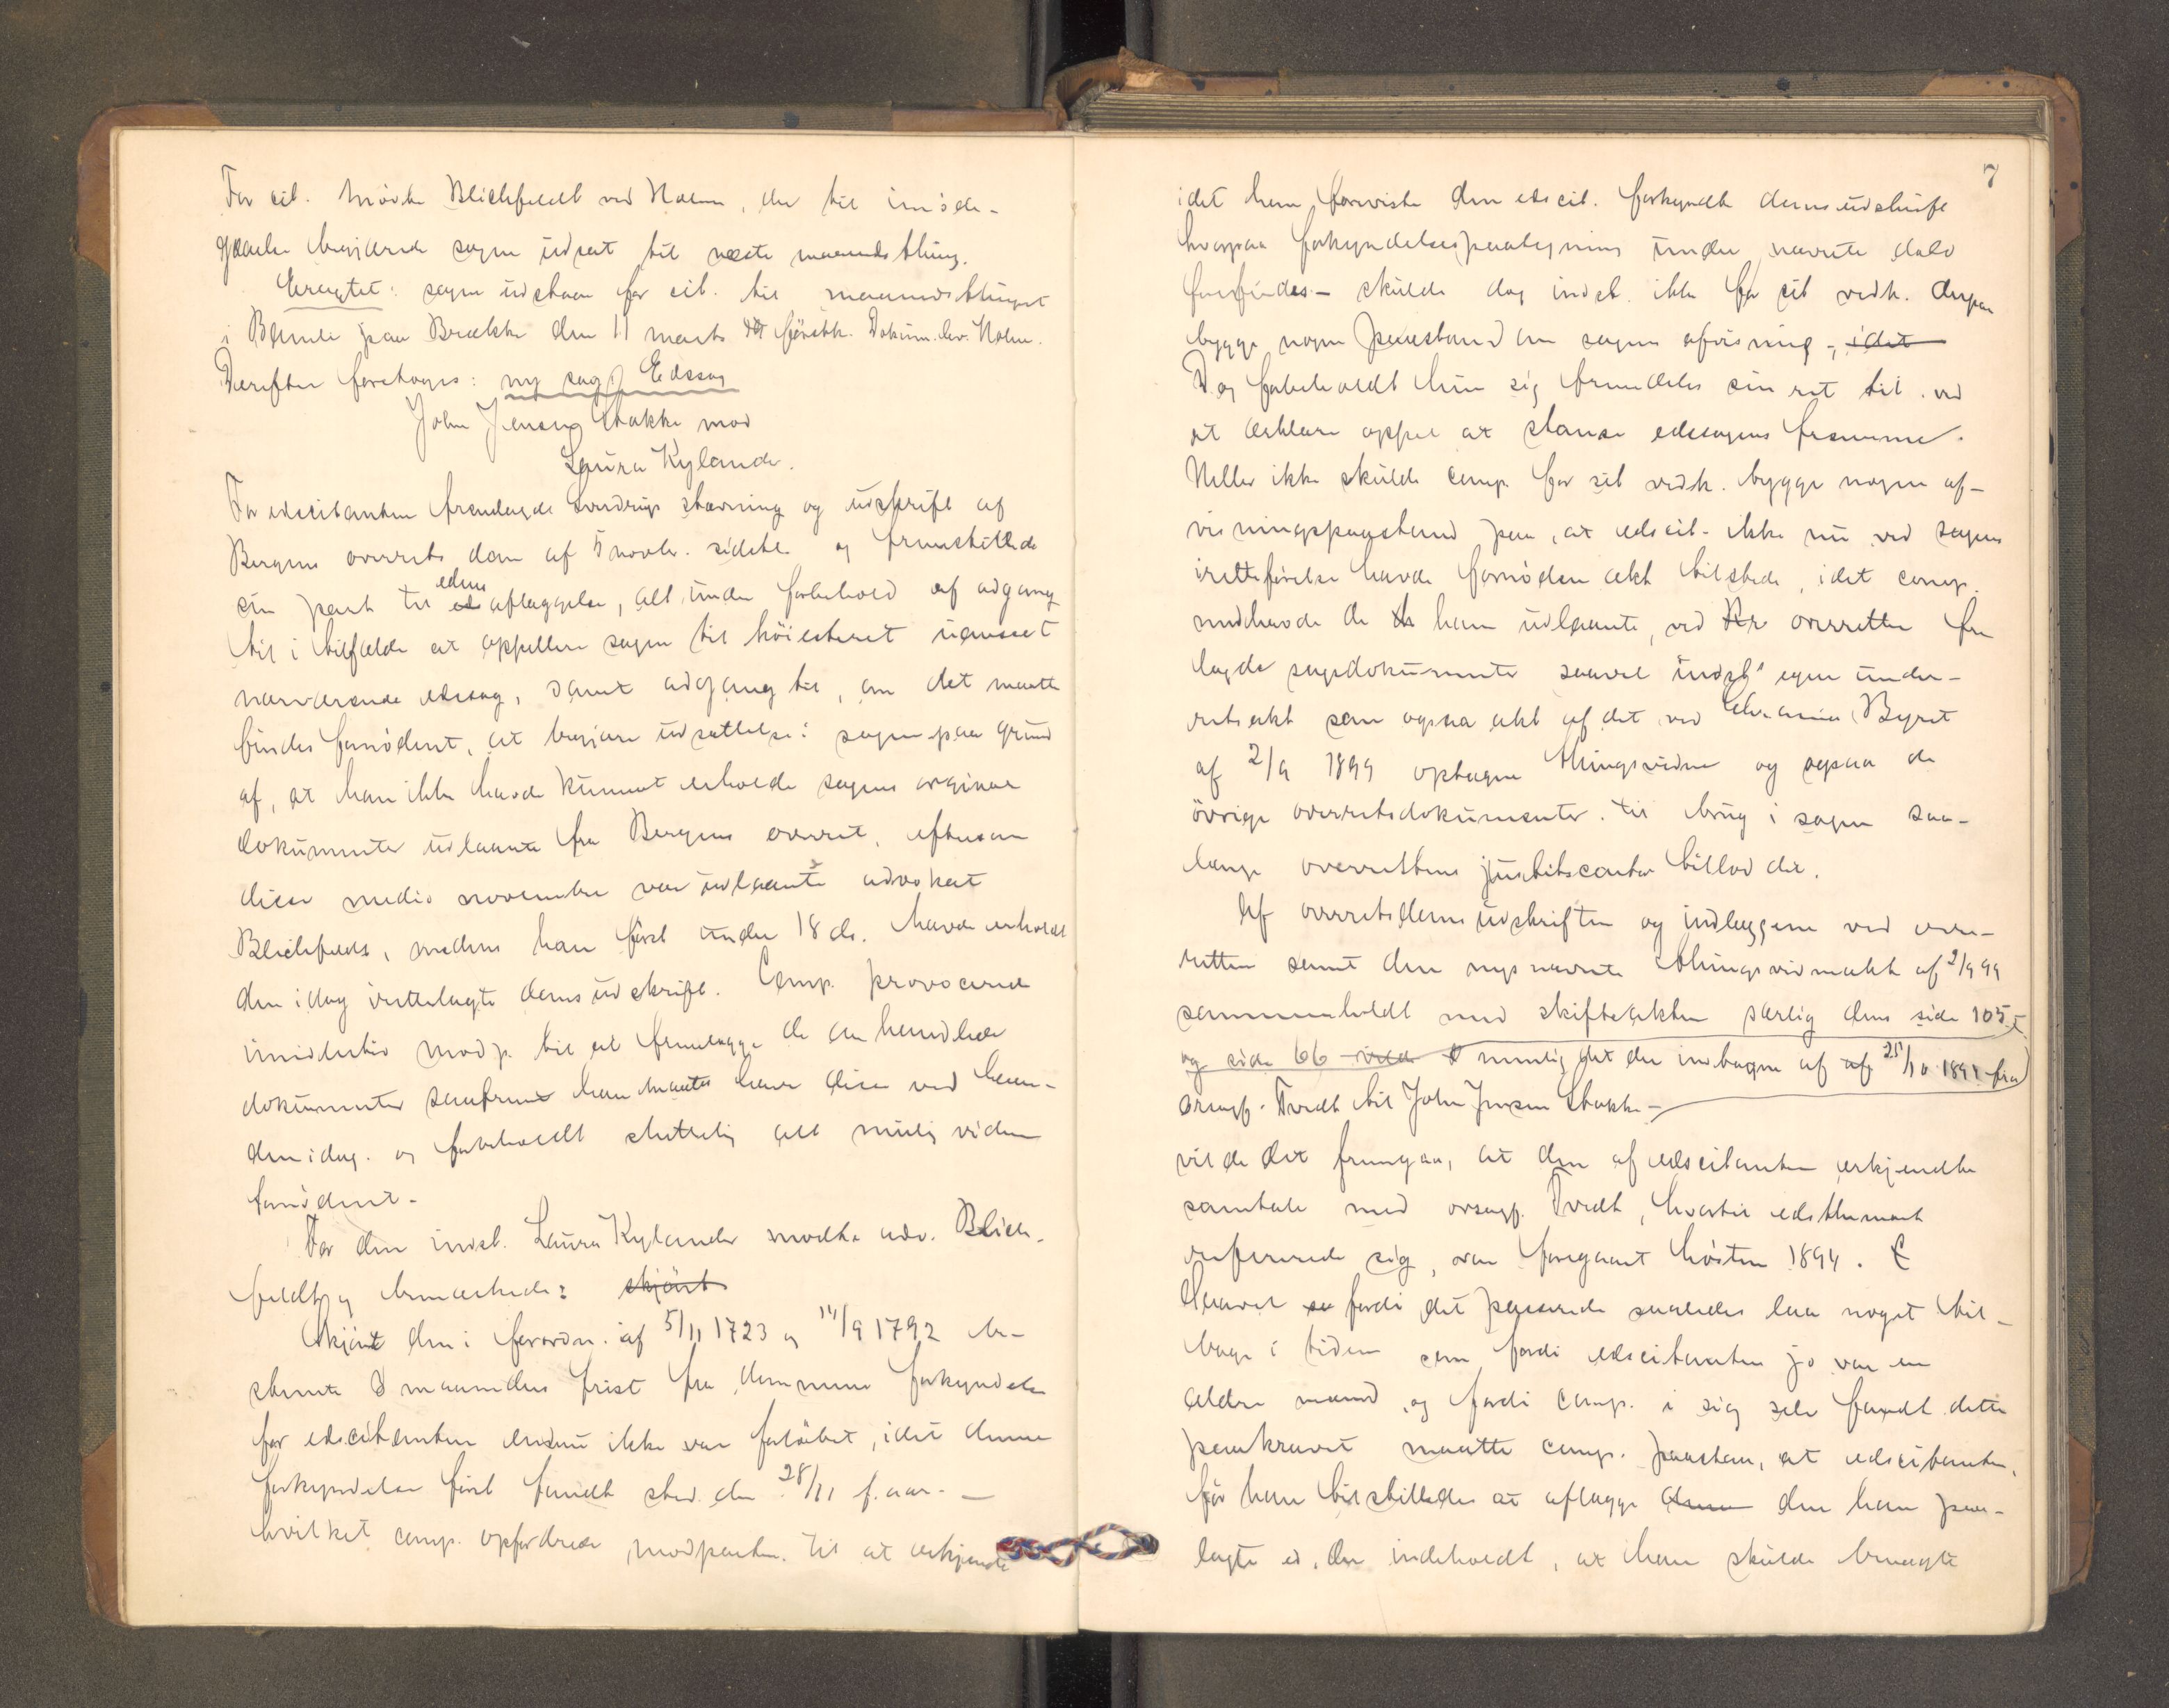 For cit. mødte Blichfeldt ved Holm, der til imøde-
gaaelse begjærede sagen udsat til næste maanedsthing.
Eragtet: sagen udstaar for cit. til maanedsthinget
i Bamle paa Brække den 11 marts førstk. Dokum. lev. Holm.
Derefter foretoges: ny sag: Edssag
John Jensen Stokke mod
Laura Kylander.
For edscitanten fremlagde stævning og udskrift af
Bergens overrets dom af 5 novbr. sidstl. og fremstillede
sin part til edens aflæggelse, alt under forbehold af adgang
til i tilfælde at appellere sagen til høiesteret uanseet
nærværende edssag, samt adgang til, om det maatte
findes fornødent, at begjære udsættelse i sagen paa grund
af, at han ikke havde kunnet erholde sagens original
dokumenter udlaante fra Bergens overret, eftersom
disse medio november var udlaante advokat
Blichfeldt, medens han først under 18 ds. havde erholdt
den idag irettelagte domsudskrift. Comp. provocerede
imidlertid modp. til at fremlægge de omhandlede
dokumenter saafremt han maatte have disse ved haan-
den idag. og forbeholdt sluttelig alt mulig videre
fornødent.-
For den indst. Laura Kylander mødte adv. Blich-
feldt og bemærkede: skjønt
Skjønt den i forordn. af 5/11 1723 og 14/9 1792 be-
stemte 3 maaneders frist fra dommens forkyndelse
for edscitanten endnu ikke var forløbet, idet denne
forkyndelse først fandt sted den 28/11 f. aar. —
hvilket comp. opfordrede modparten til at erkjende
7
idet han foreviste den edscit. forkyndte domsudskrift
hvorpaa forkyndelsespaategning under nævnte dato
forefindes — skulde dog indst. ikke for sit vedk. derpaa
bygge nogen paastand om sagens afvisning -, idet
Dog forbeholdt hun sig fremdeles sin ret til ved
at erklære appel at standse edssagens fremme.
Heller ikke skulde comp. for sit vedk. bygge nogen af-
visningspaastand paa, at edscit. ikke nu ved sagens
iretteførelse havde fornøden akt tilstede, idet comp.
medhavde de ham udlaante, ved overretten frem
lagde sagsdokumenter saavel indst's egen under-
retsakt som ogsaa akt af det ved Chr.ania Byret
af 2/9 1899 optagne thingsvidne og ogsaa de
øvrige overretsdokumenter til brug i sagen saa-
længe overrettens justitscontor tillod det.
Af overretsdoms udskriften og indlæggene ved over-
retten samt den nysnævnte thingsvidneakt af 2/9 99
sammenholdt med skifteakten særlig dens side 105
og side 66 nemlig det der indtagne af 25/10 1894 fra
orsagf. Tvedt til John Jensen Stokke —
vilde det fremgaa, at den af edscitanten erkjendte
samtale med orsagf. Tvedt, hvortil edsthemaet
refererede sig, var foregaaet høsten 1894.
Saavel fordi det passerede saaledes laa noget til-
bage i tiden som fordi edscitanten jo var en
ældre mand, og fordi comp. i sig selv fandt dette
paakrævet maatte comp. paastaa, at edscitanten,
før han tilstilledes at aflægge den ham paa-
lagte ed, der indeholdt, at han skulde benægte